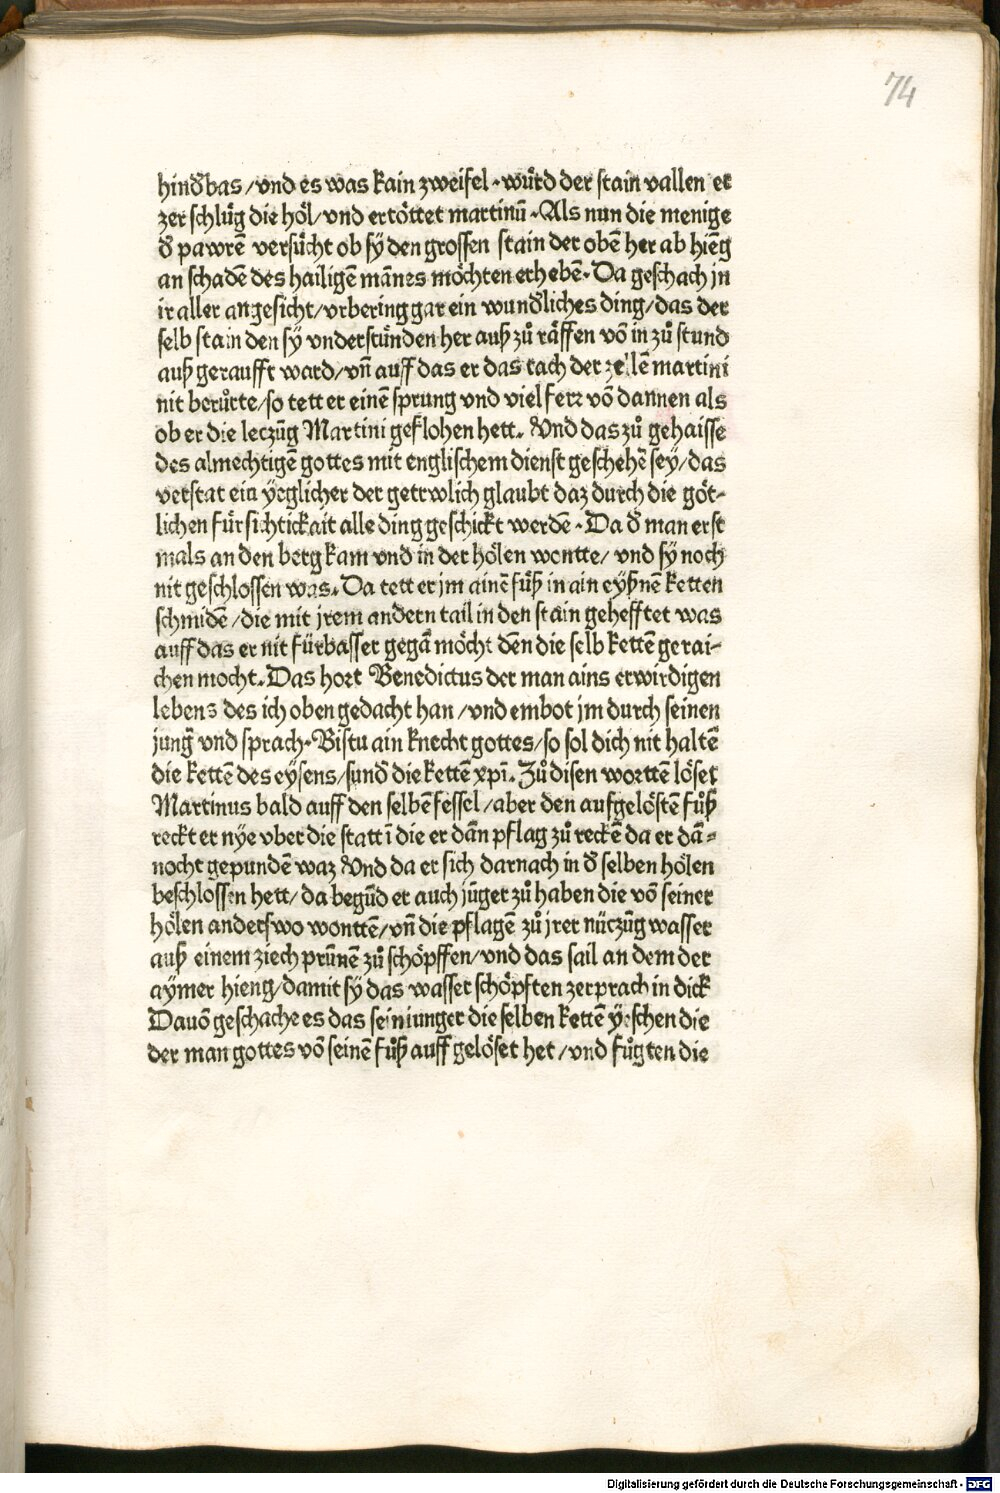 74
hindð bas /vnd es was kain zweifel · wuͤrd der stain vallen er
zer schluͤg die hoͤl/vnd ertoͤttet martinū · Als nun die menige
ð pawrē versuͤcht ob sÿ den grossen stain der obē her ab hiēg
an schadē des hailigē mānes moͤchten erhebē · Da geschach jn
ir aller angesicht/vrbering gar ein wundðliches ding/das der
selb stain den sÿ vnderstuͤnden her auß zů raͤffen vō in zů stund
auß geraufft ward/vn̄ auff das er das tach der zellē martini
nit beruͤrte/so tett er einē sprung vnd viel ferr vō dannen als
ob er die leczūg Martini geflohen hett. Vnd das zů gehaisse
des almechtigē gottes mit englischem dienst geschehē seÿ/das
verstat ein ÿeglicher der getrwlich glaubt daz durch die goͤt-
lichen fuͤrsichtickait alle ding geschickt werdē · Da ð man erst
mals an den berg kam vnd in der hoͤlen wontte/ vnd sÿ noch
nit geschlossen was. Da tett er jm ainē fuͤß in ain eyßnē ketten
schmidē /die mit jrem andern tail in den stain gehefftet was
auff das er nit fuͤrbasser gegā moͤcht dēn die selb kettē gerai-
chen mocht. Das hort Benedictus der man ains erwirdigen
lebens des ich oben gedacht han /vnd embot jm durch seinen
jungr̄ vnd sprach · Bistu ain knecht gottes/so sol dich nit haltē
die kettē des eÿsens/sundð die kettē xpī. Zů disen worttē loͤset
Martinus bald auff den selbē fessel /aber den aufgeloͤstē fůß
reckt er nÿe vber die statt ī die er dān pflag zů reckē da er dā-
nocht gepundē waz Vnd da er sich darnach in ð selben hoͤlen
beschlossen hett/ da begūd er auch jūger zů haben die vō seiner
hoͤlen anderswo wonttē/vn̄ die pflagē zů jrer nüczūg wasser
auß einem ziech prūnē zů schoͤpffen/vnd das sail an dem der
aÿmer hieng/damit sÿ das wasser schoͤpften zerprach in dick
Dauō geschache es das sein iunger die selben kettē ÿeschen die
der man gottes vō seinē fůß auff geloͤset het /vnd fuͤgten die
Digitalisierung gefördert durch die Deutsche Forschungsgemeinschaft - DFG